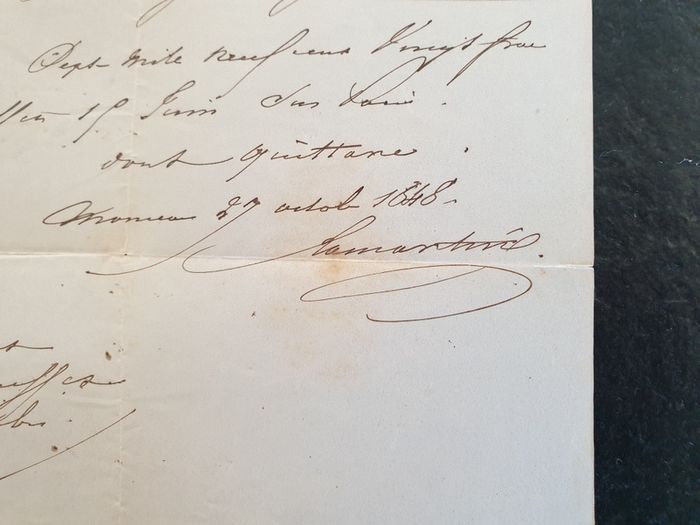 Sept mille neuf cent Vingt fran
15 Juin sur Paris.
dont quittance.
Monceau 27 octob 1848.
Lamartine